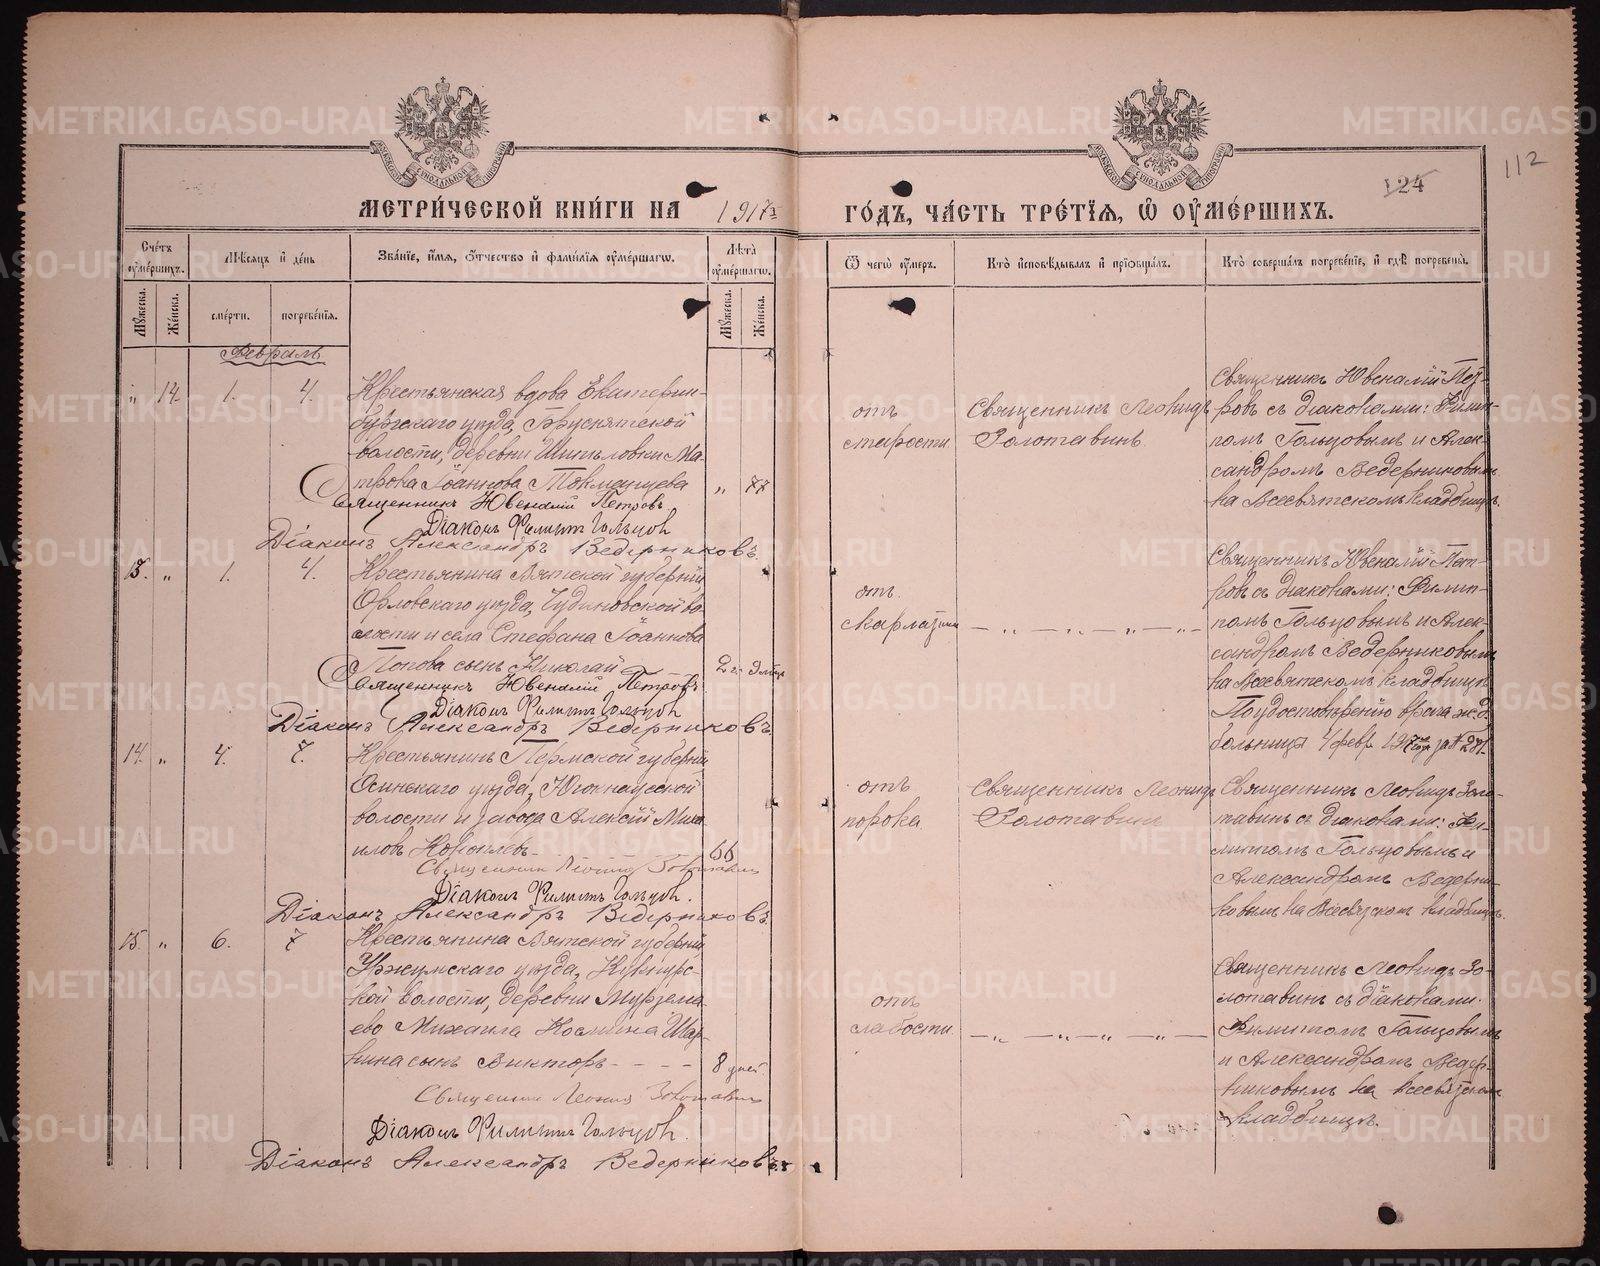 112
124
МЕТРИ́ЧЕСКОЙ КНИ́ГИ НА 1917й ГО́ДЪ, ЧА́СТЬ ТРЕ́ТІѦ, Ѡ҆ ОУ҆МЕ́РШИХЪ.
Сче́тъ оу҆ме́ршихъ.
Мѣ́сяцъ и҆ де́нь
Зва́нїе, и҆́мѧ, ѻ҆́тчество и҆ фами́лїѧ оу҆ме́ршагѡ.
Лѣ́та оу҆ме́ршагѡ.
Ѿ чегѡ̀ оу҆́меръ.
Кто̀ и҆сповѣ́дывалъ и҆ прїѡбща́лъ.
Кто̀ соверша́лъ погребе́нїе, и҆ гдѣ̀ погребены̀.
Мꙋ́жеска.
Же́нска.
сме́рти.
погребе́нїѧ.
Мꙋ́жеска.
Же́нска.
Февраль
„ 14. 1. 4.
Крестьянская вдова Екатерин-
бургскаго уѣзда, Брусянтской
волости, деревни Шипѣловки Ма-
трона Іоаннова Токманцева „ 77
Священникъ Ювеналій Петровъ
Діаконъ Филиппъ Гольцовъ
Діаконъ Александръ Ведерниковъ.
отъ
старости
Священникъ Леонидъ
Золотавинъ.
Священникъ Ювеналій Пет-
ровъ съ діаконами: Филип-
помъ Гольцовымъ и Алек-
сандромъ Ведерниковымъ
на Всесвятскомъ кладбищѣ.
13. „ 1. 4.
Крестьянина Вятской губерніи,
Орловскаго уѣзда, Чудиновской во-
лости и села Стефана Іоаннова
Попова сынъ Николай 2 г.
Священникъ Ювеналій Петровъ
Діаконъ Филиппъ Гольцовъ
Діаконъ Александръ Ведерниковъ.
отъ
скарлатины
— „ — „ — „ —
Священникъ Ювеналій Пет-
ровъ съ діаконами: Филип-
помъ Гольцовымъ и Алек-
сандромъ Ведерниковымъ
на Всесвятскомъ кладбищѣ
По удостовѣренію врача ж. д.
больницы 4 февр. 1917 года за №
14. „ 4. 7.
Крестьянинъ Пермской губерніи
Осинскаго уѣзда, Югокнауфской
волости и завода Алексій Миха-
иловъ 66
Священникъ Леонидъ Золотавинъ
Діаконъ Филиппъ Гольцовъ.
Діаконъ Александръ Ведерниковъ.
отъ
порока
Священникъ Леонидъ
Золотавинъ
Священникъ Леонидъ Золо-
тавинъ съ діаконами: Фи-
липпомъ Гольцовымъ и
Александромъ Ведерни-
ковымъ на Всесвятскомъ кладбищѣ.
15. „ 6. 7
Крестьянина Вятской губерніи,
Уржумскаго уѣзда,
кой волости, деревни Мурзена-
ево Михаила Космина Шар-
нина сынъ Викторъ - - - - 8 дней
Священникъ Леонидъ Золотавинъ
Діаконъ Филиппъ Гольцовъ.
Діаконъ Александръ Ведерниковъ.
отъ
слабости
— „ — „ — „ — „ —
Священникъ Леонидъ Зо-
лотавинъ съ діаконами
Филиппомъ Гольцовымъ
и Александромъ Ведер-
никовымъ на Всесвятскомъ
кладбищѣ.
METRIKI.GASO-URAL.RU